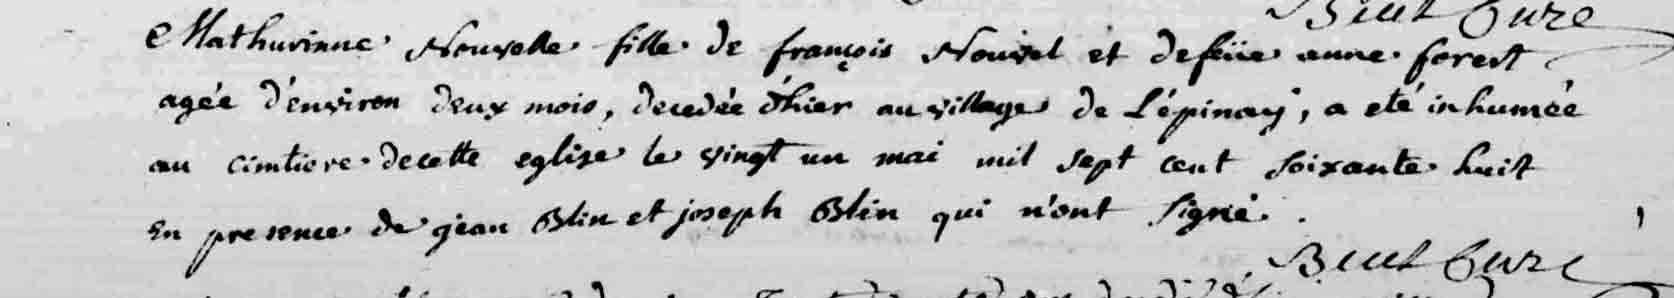 Curé
Mathurinne Nouvelle fille de françois Nouvel et defeüe anne forest
agée d'environ deux mois, decedée d'hier au village de L'épinay, a eté inhumée
au cimtiere decette eglise le vingt un mai mil sept cent soixante huit
En presence de jean Blin et joseph Blin qui n'ont signé.
Curé